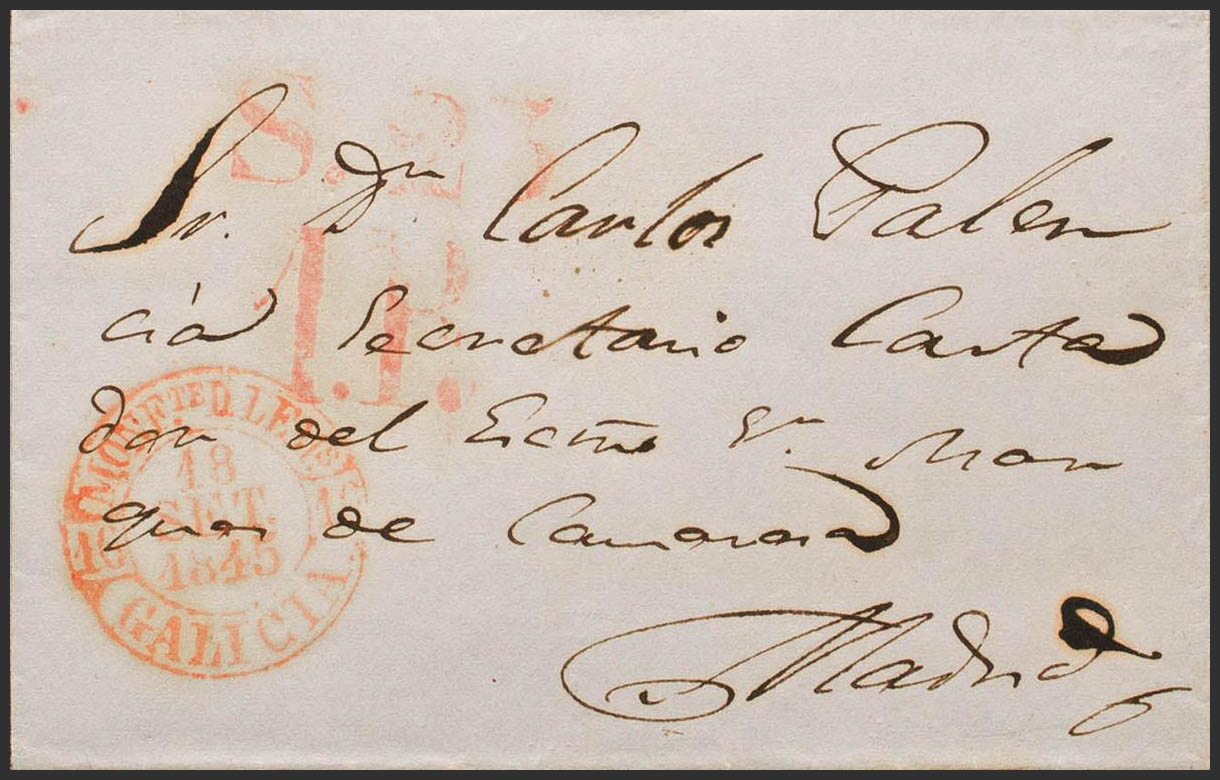 S. 21
1.R.
Sr. Dn Carlos Palen
cia Secretario Conta
dor del Excmo Sr Mar
ques de Camarasa
Madrid
MONF.TE D LEMOS
18
SET.
1845
GALICIA